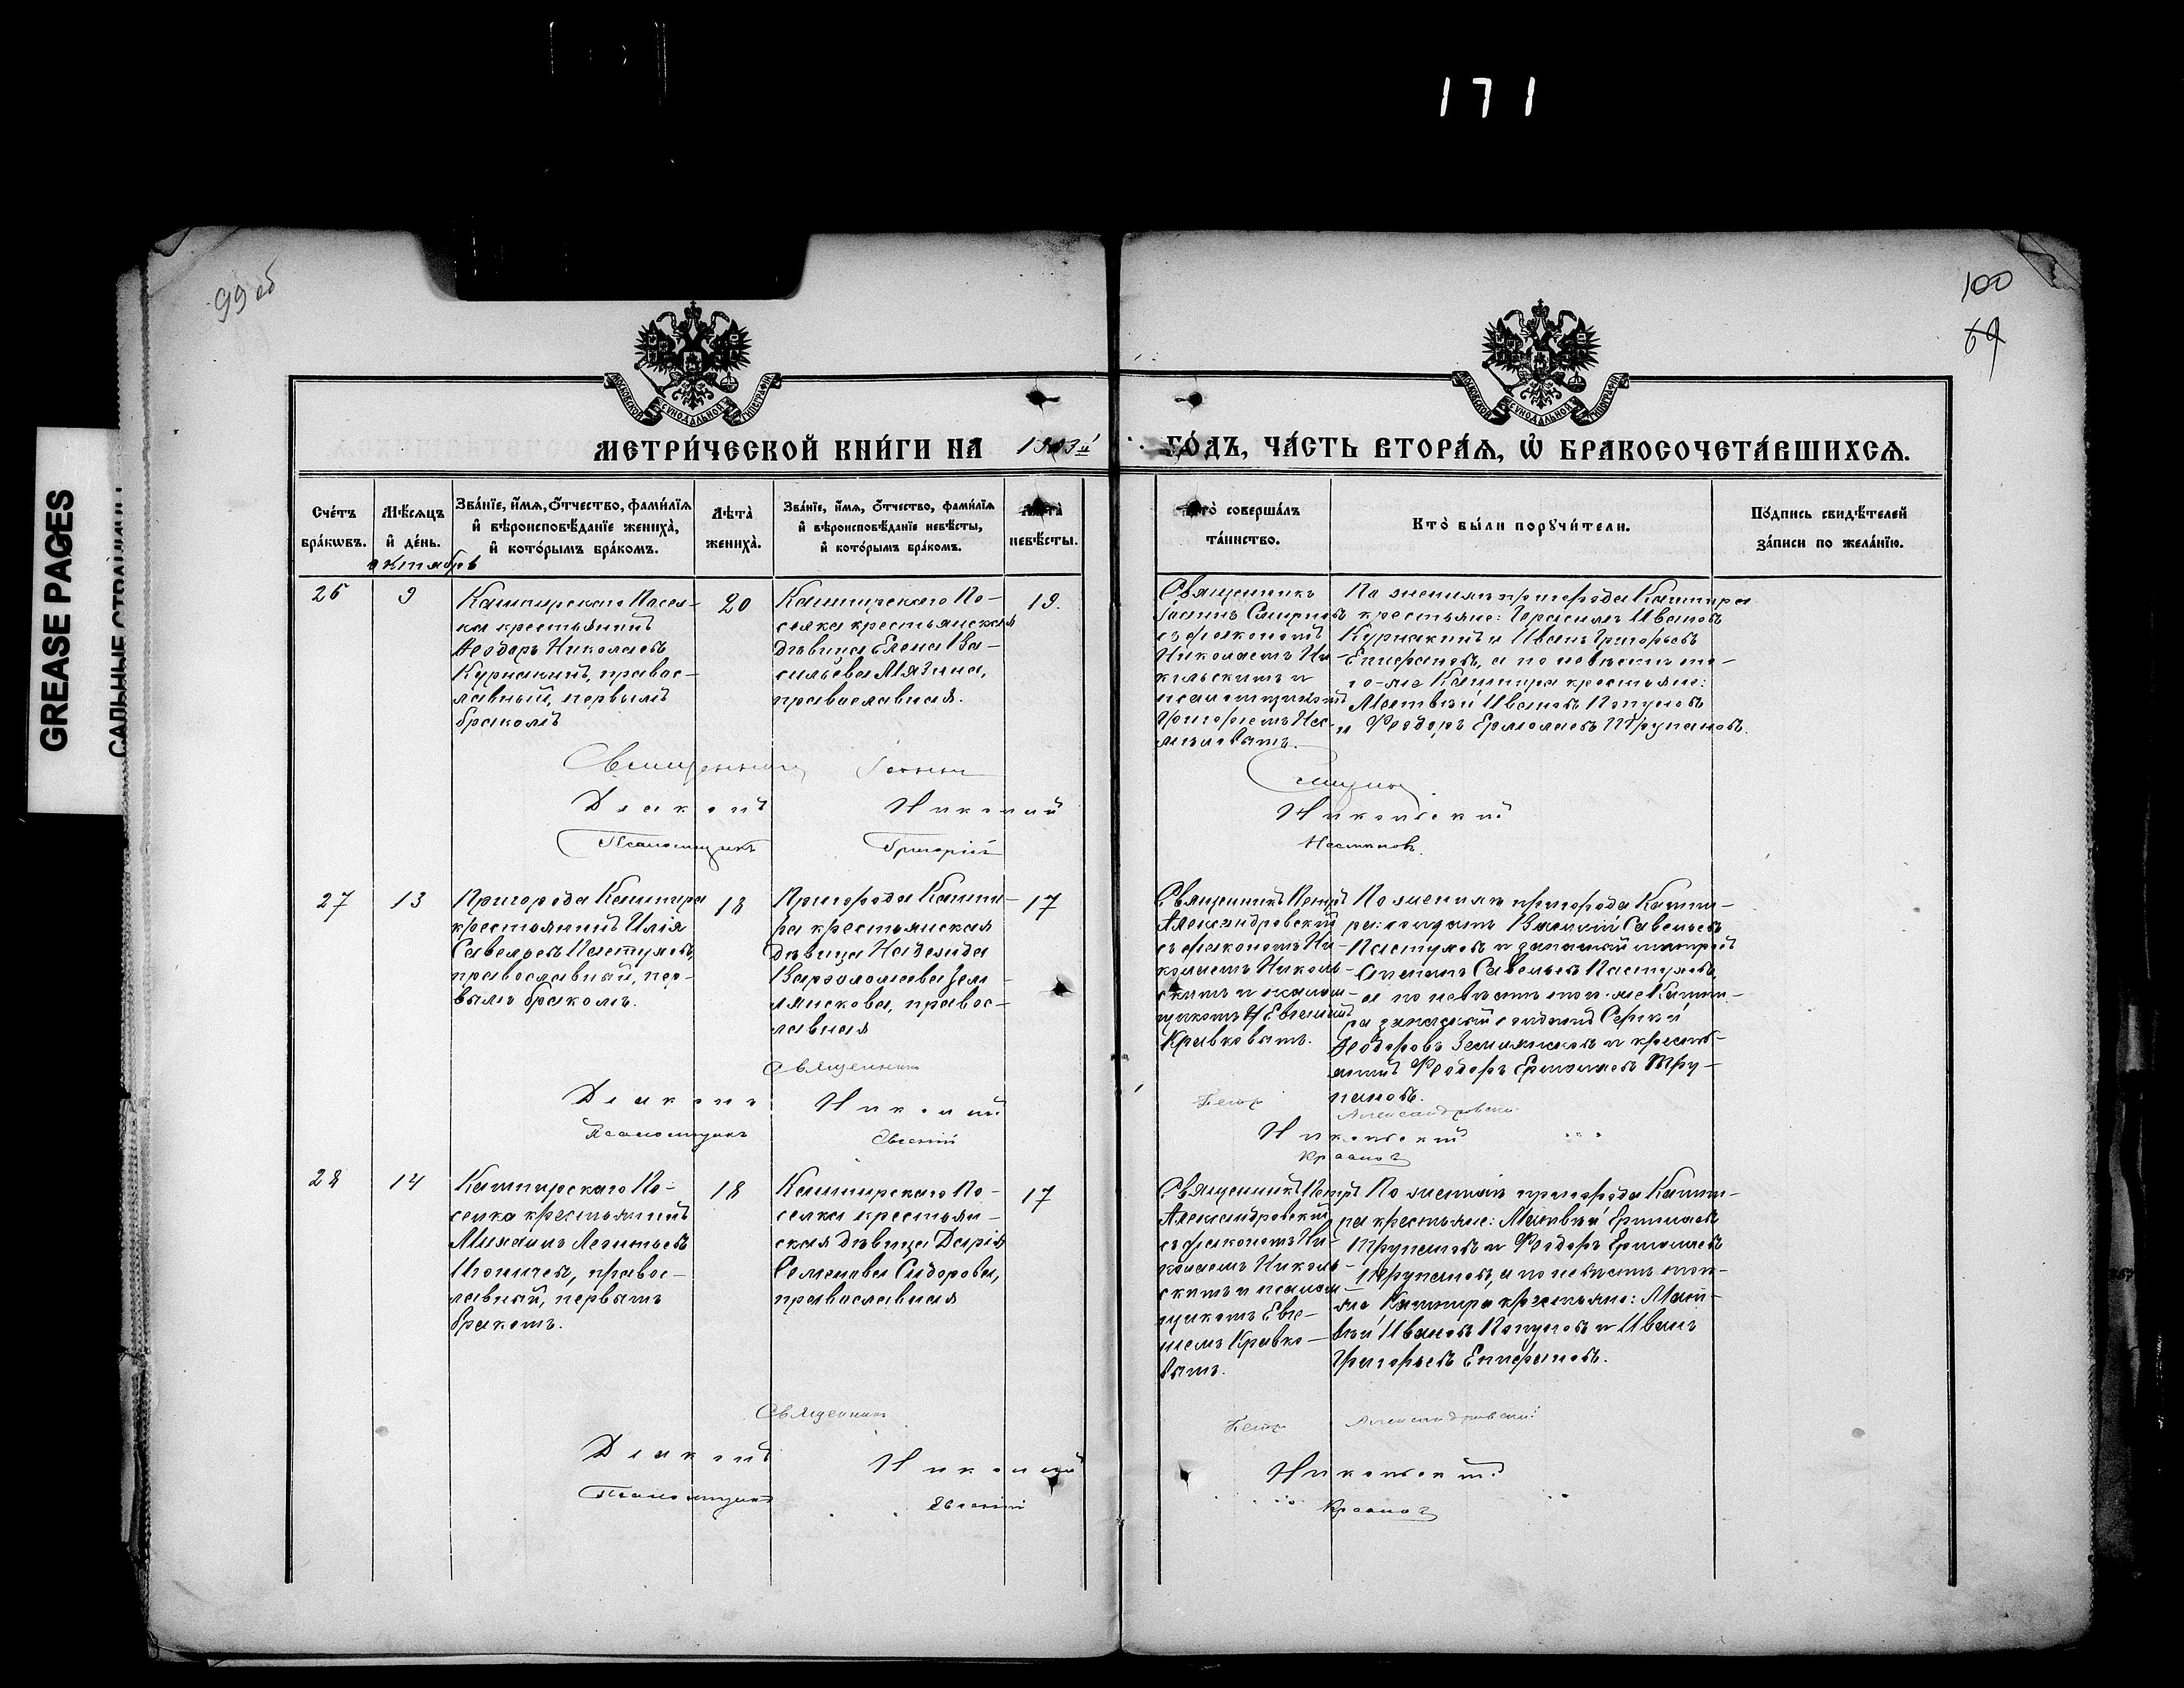 171
GREASE PAGES
САЛЬНЫЕ СТРАНИЦЫ
99 об
100
69
МОСКОВСКОЙ СѴНОДАЛЬНОЙ ТИПОГРАФІИ
МОСКОВСКОЙ СѴНОДАЛЬНОЙ ТИПОГРАФІИ
МЕТРИ́ЧЕСКОЙ КНИ́ГИ НА 1903й ГО́ДЪ, ЧА́СТЬ ВТОРА́Я, Ѽ БРАКОСОЧЕТА́ВШИХСѦ.
Сче́тъ бра́кѡвъ.
Мѣ́сяцъ и҆ де́нь.
Зва́нїе, и҆́мѧ, ѻ҆́тчество, фами́лїѧ и҆ вѣроисповѣ́данїе жениха̀, и҆ кото́рымъ бра́комъ.
Лѣ́та̀ жениха̀.
Зва́нїе, и҆́мѧ, ѻ҆́тчество, фами́лїѧ и҆ вѣроисповѣ́данїе невѣ́сты, и҆ кото́рымъ бра́комъ.
Лѣ́та̀ невѣ́сты.
Кто̀ соверша́лъ та́инство.
Кто̀ бы́ли порꙋчи́тели.
По́дпись свидѣ́телей за́писи по жела́нїю.
октябрь
26
9
Кашпирскаго Посел-
ка крестьянинъ
Ѳеодоръ Николаевъ
Курнакинъ, правос-
лавный, первымъ
бракомъ
20
Кашпирскаго По-
селка крестьянская
дѣвица Елена Ва-
сильева Мязина,
православная.
19.
Священникъ
Іоаннъ Смирновъ
съ діакономъ
Николаемъ Ни-
кольскимъ и
псаломщикомъ
Григоріемъ
По женихѣ пригорода Кашпира
крестьяне: Герасимъ Ивановъ
Курнакинъ и Иванъ Григорьевъ
Епифановъ, а по невѣстѣ то-
го-же Кашпира крестьяне:
Матвѣй Ивановъ Популовъ
и Ѳеодоръ Ермолаевъ Трупановъ.
Священникъ Іоаннъ Смирнов
Діаконъ Николай Никольский
Псаломщикъ Григорій
27
13
Пригорода Кашпира
крестьянинъ Илія
Савельевъ Пастуховъ,
православный, пер-
вымъ бракомъ.
18
Пригорода Кашпи-
ра крестьянская
дѣвица Надежда
Варѳоломеева Зем-
лянскова, правос-
лавная
17
Священникъ Петръ
Александровскій
съ діакономъ Ни-
колаемъ Николь-
скимъ и псалом-
щикомъ Евгеніемъ
Кравковымъ.
По женихѣ пригорода Кашпи-
ра: солдатъ Василій Савельевъ
Пастуховъ и запасный
Степанъ Савельевъ Пастуховъ,
а по невѣстѣ того-же Кашпи-
ра запасный солдатъ Сергѣй
Ѳеодоровъ Землянсковъ и кресть-
янинъ Ѳеодоръ Ермолаевъ Тру-
пановъ.
Священникъ Петръ Александровскій
Діаконъ Николай Никольскій
Псаломщикъ Евгеній Кравковъ
28
14
Кашпирскаго По-
селка крестьянинъ
Михаилъ Леонтьевъ
правос-
лавный, первымъ
бракомъ.
18
Кашпирскаго По-
селка крестьян-
ская дѣвица Дарія
Семенова Сидорова,
православная
17
Священникъ Петръ
Александровскій
съ діакономъ Ни-
колаемъ Николь-
скимъ и псалом-
щикомъ Евге-
ніемъ Кравко-
вымъ.
По женихѣ пригорода Кашпи-
ра крестьяне: Матвѣй Ермолаевъ
Трупановъ и Ѳеодоръ Ермолаевъ
Трупановъ, а по невѣстѣ того-
же Кашпира крестьяне: Мат-
вѣй Ивановъ Популовъ и Иванъ
Григорьевъ Епифановъ.
Священникъ Петръ Александровскій
Діаконъ Николай Никольскій
Псаломщикъ Евгеній Кравковъ